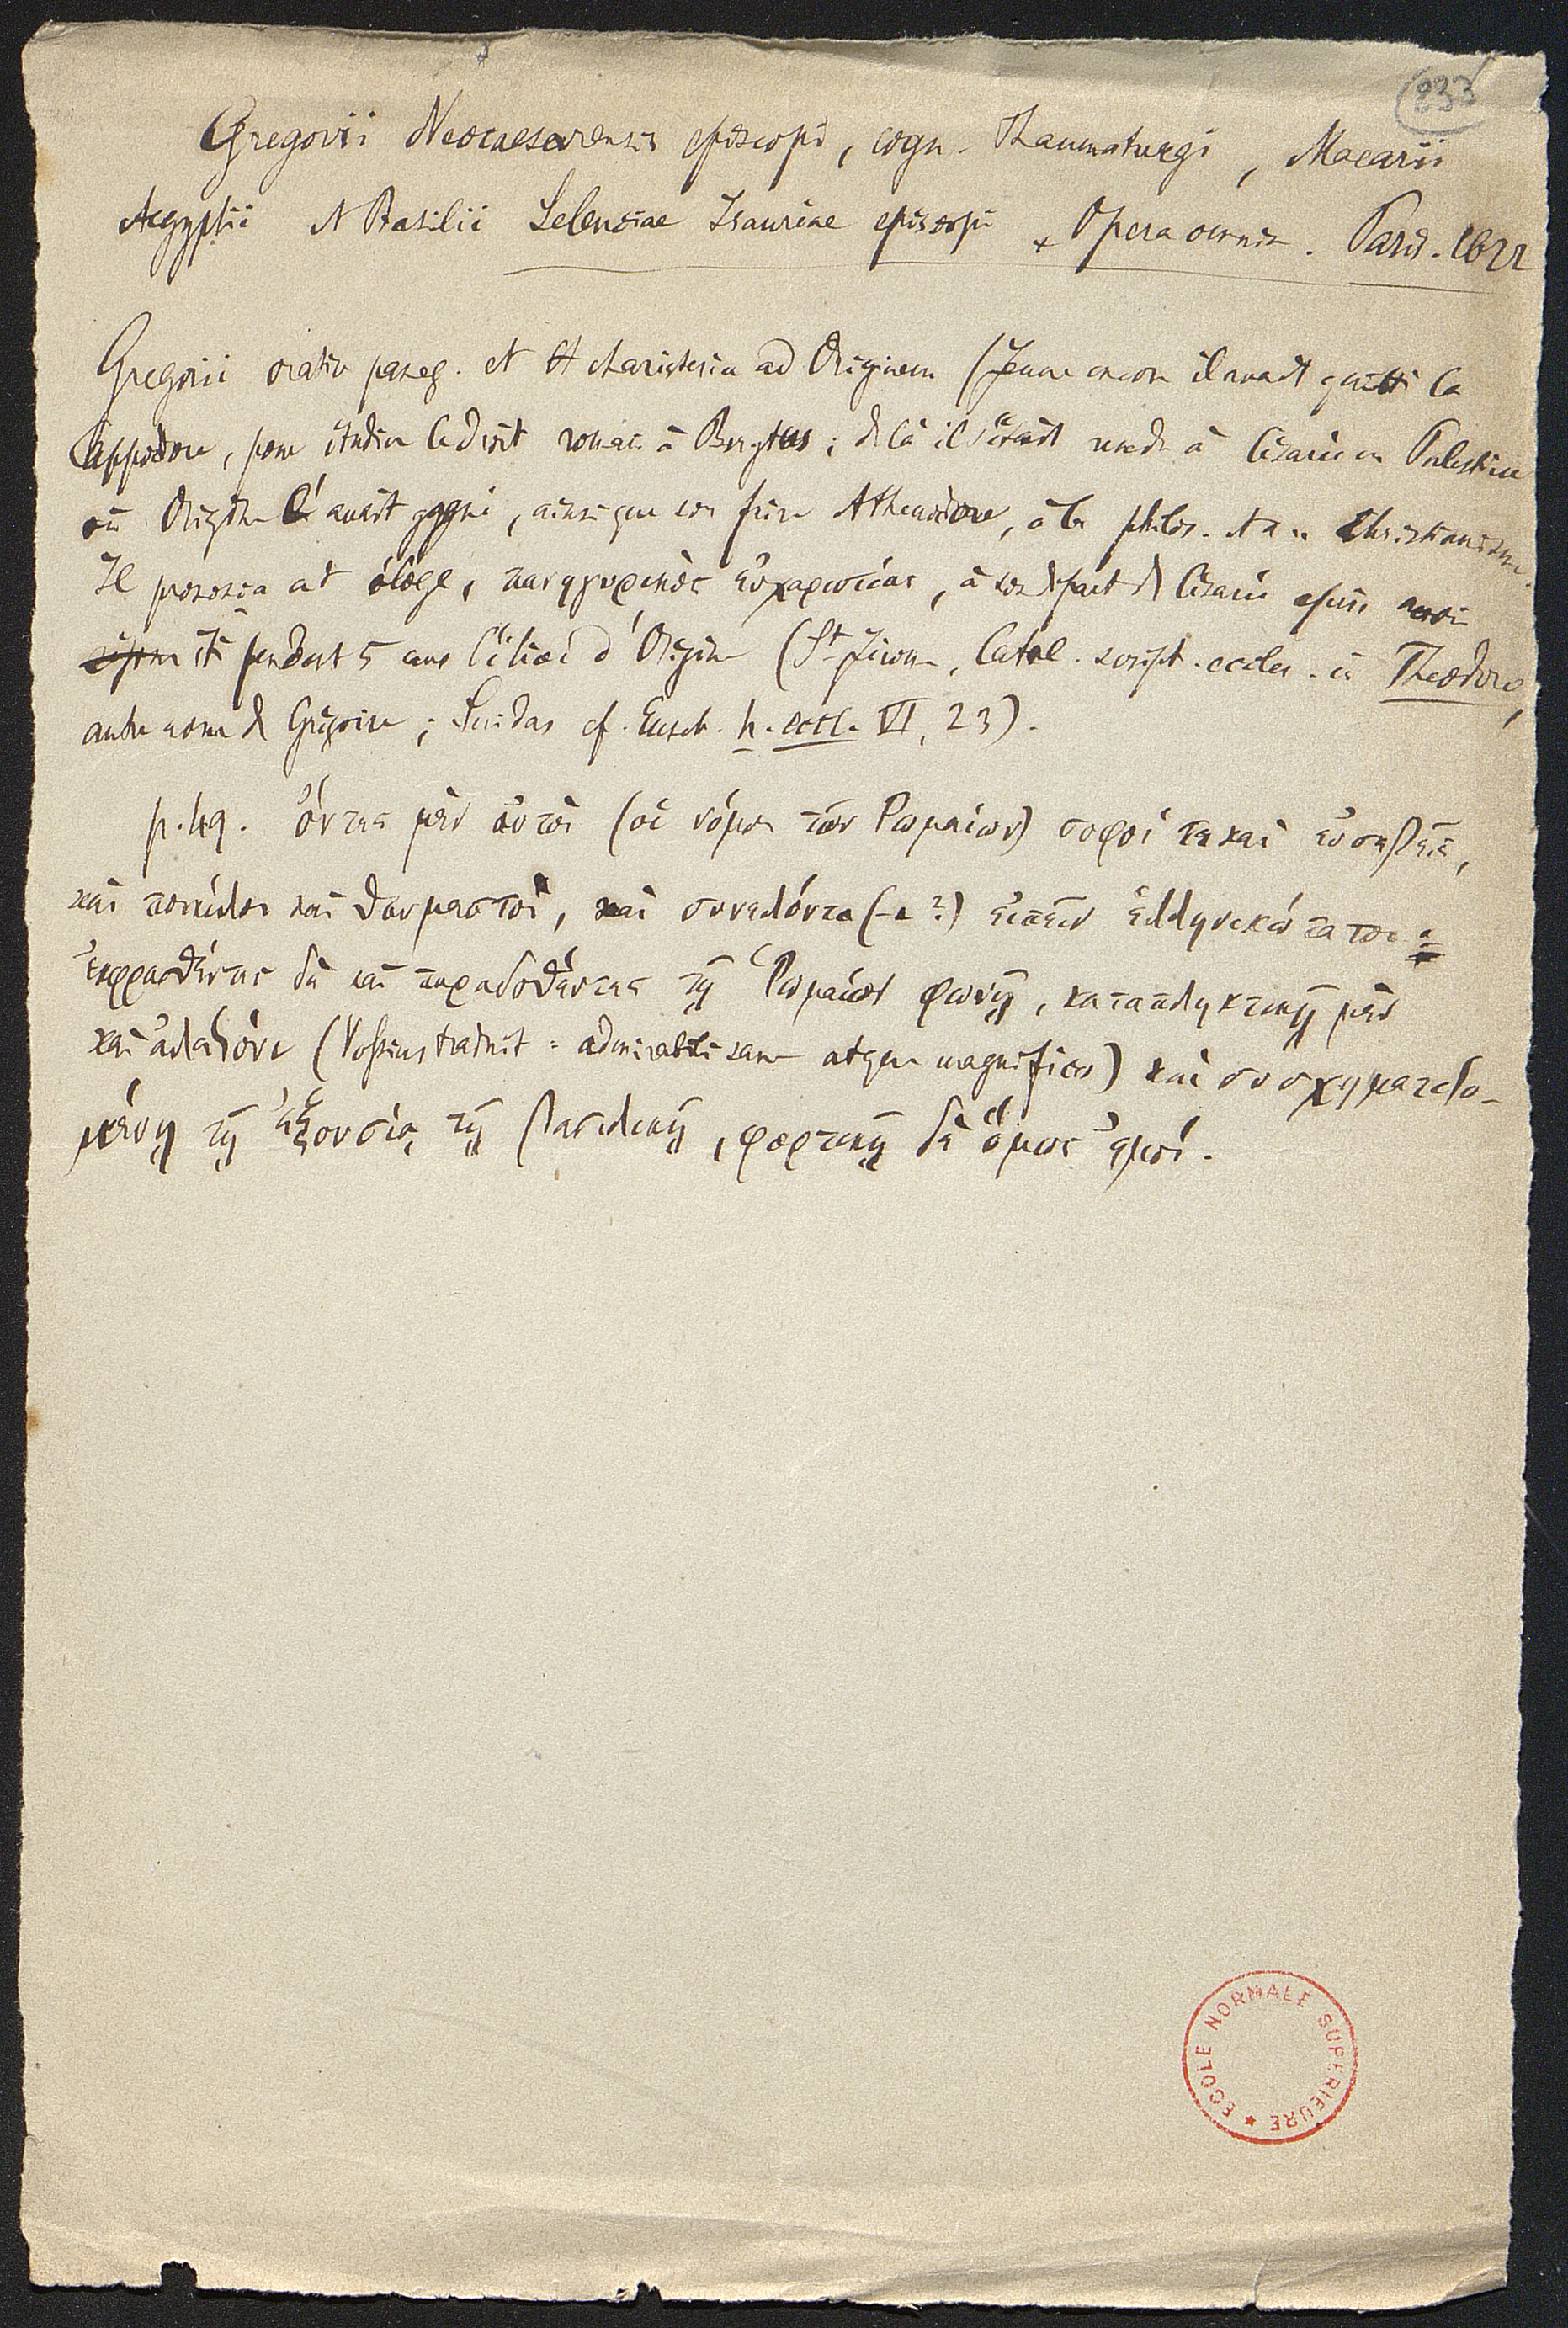 233
Gregorii Neocaesarensis episcopi, cogn. Thaumaturgi, Macarii
Aegyptii et Basilii Seleuciae Isauriae episcopi Opera omnia. Paris. 1622
Gregorii oratio paneg. et charisteria ad Originem (Jeune encore il avait quitté la
Cappadoce, pour étudier le droit romain à Berytus; de là il s'était rendu à Césarée en Palestine
où Origène l'avait gagné, ainsi que son frère Athénodore, à la philos. et au Christianisme.
Il prononça cet éloge, πανηγυρικὸς εὐχαριστίας, à son départ de Césarée après avoir
été pendant 5 ans l'élève d'Origène (St Jérôme, Catal. script. eccles. in Theodoro,
autre nom de Grégoire; Suidas cf. Euseb. h. eccl. VI, 23).
p. 49. ὄντες μὲν αὐτοὶ (οἱ νόμοι τῶν Ρωμαίων) σοφοί τε καὶ εὐσεβεῖς,
καὶ ποικίλοι καὶ θαυμαστοὶ, καὶ συνελόντα (-ι ?) εἰπεῖν ἑλληνικώτατοι
ἐκφρασθέντες δὲ καὶ παραδοθέντες τῇ Ῥωμαίων φωνῇ, καταπληκτικῇ μὲν
καὶ ἀλαζόνι (Vossius traduit = admirabili sane atque magnifica) καὶ συσχηματιζο-
μένῃ τῇ ἐξουσίᾳ τῇ βασιλικῇ, φορτικῇ δὲ ὅμως ἐμοί.
ECOLE NORMALE SUPERIEURE